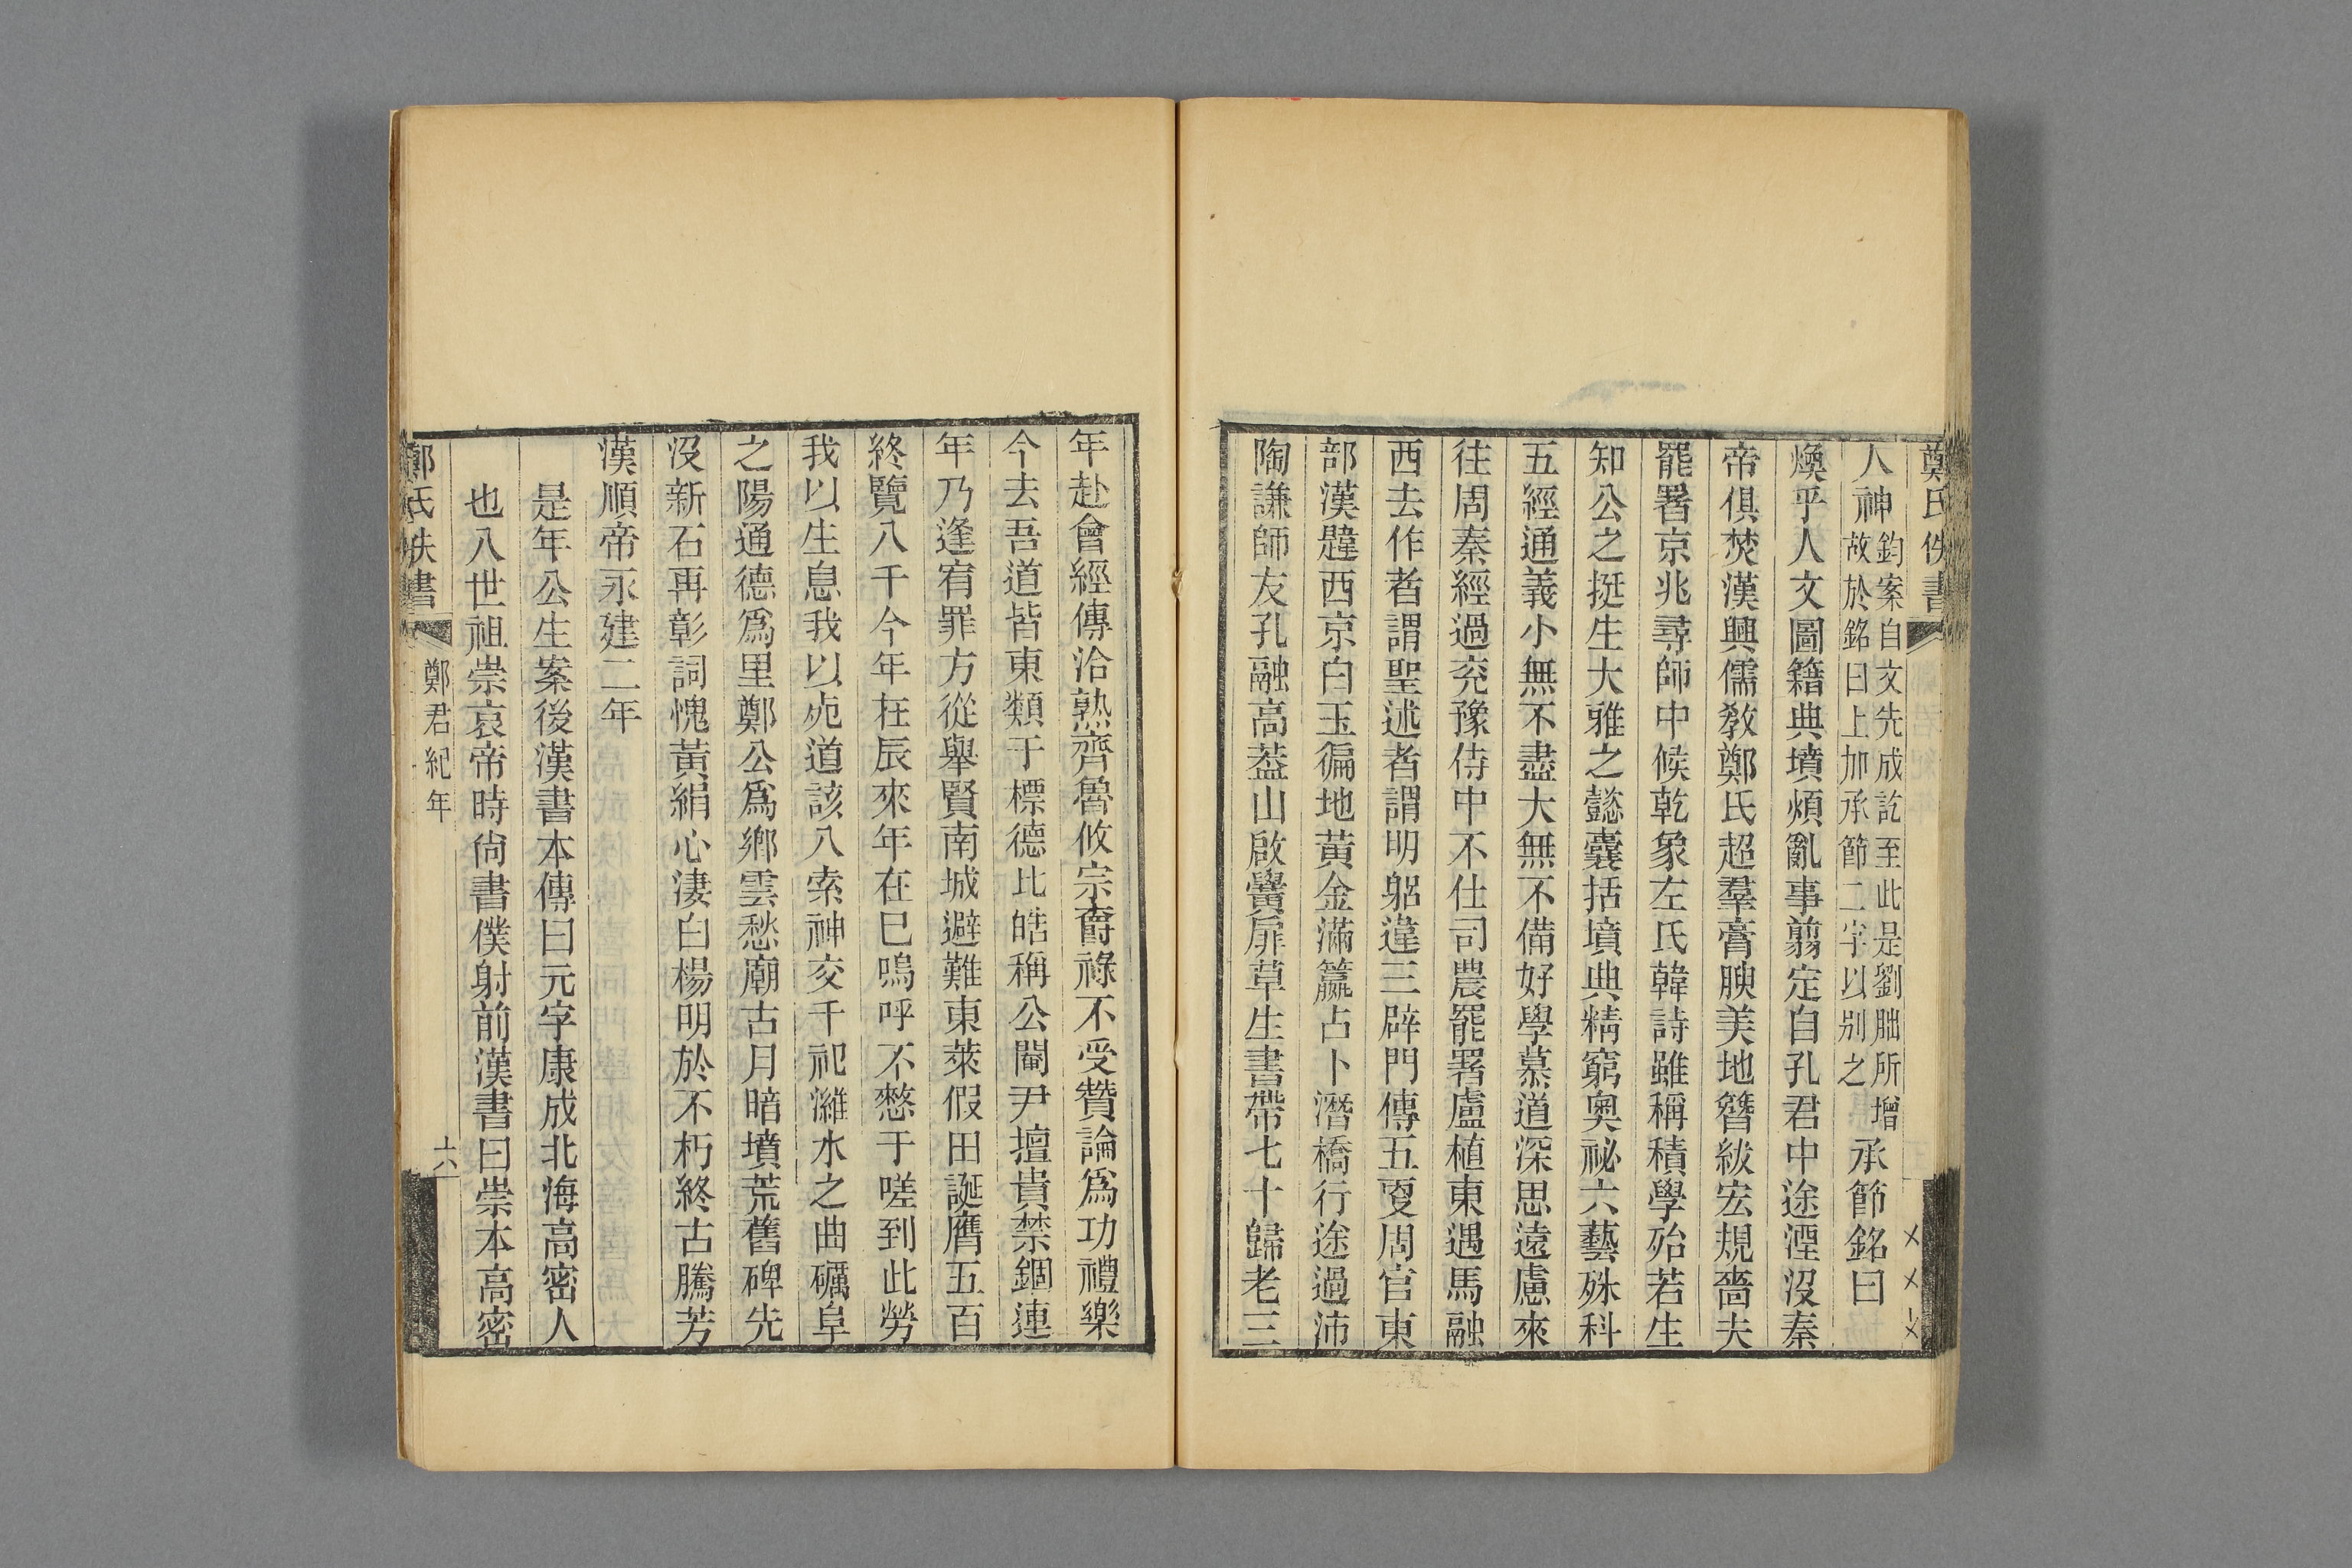 鄭氏佚書
人神鈞案自文先成訖至此是劉朏所增故於銘曰上加承節二字以別之承節銘曰
煥乎人文圖籍典墳煩亂事翦定自孔君中途湮沒秦
帝俱焚漢興儒教鄭氏超羣膏腴美地簪紱宏規嗇夫
罷署京兆尋師中候乾象左氏韓詩雖稱積學殆若生
知公之挺生大雅之懿囊括墳典精窮奧祕六藝殊科
五經通義小無不盡大無不備好學慕道深思遠慮來
往周秦經過兖豫侍中不仕司農罷署盧植東遇馬融
西去作者謂聖述者謂明躬違三辟門傳五夏周官東
部漢韙西京白玉徧地黃金滿籯占卜潛橋行途過沛
陶謙師友孔融高葢山啟黌扉草生書帶七十歸老三
年赴會經傳洽熟齊魯攸宗爵祿不受贊論爲功禮樂
今去吾道皆東類于標德比皓稱公閽尹擅貴禁錮連
年乃逢宥罪方從舉賢南城避難東萊假田誕膺五百
終覽八千今年在辰來年在巳嗚呼不憖于嗟到此勞
我以生息我以死道該八索神交千祀濰水之曲礪阜
之陽通德爲里鄭公爲鄉雲愁廟古月暗墳荒舊碑先
沒新石再彰詞愧黃絹心淒白楊明於不朽終古騰芳
漢順帝永建二年
是年公生案後漢書本傳曰元字康成北海高密人
也八世祖崇哀帝時尚書僕射前漢書曰崇本高密
鄭氏佚書
鄭君紀年
六